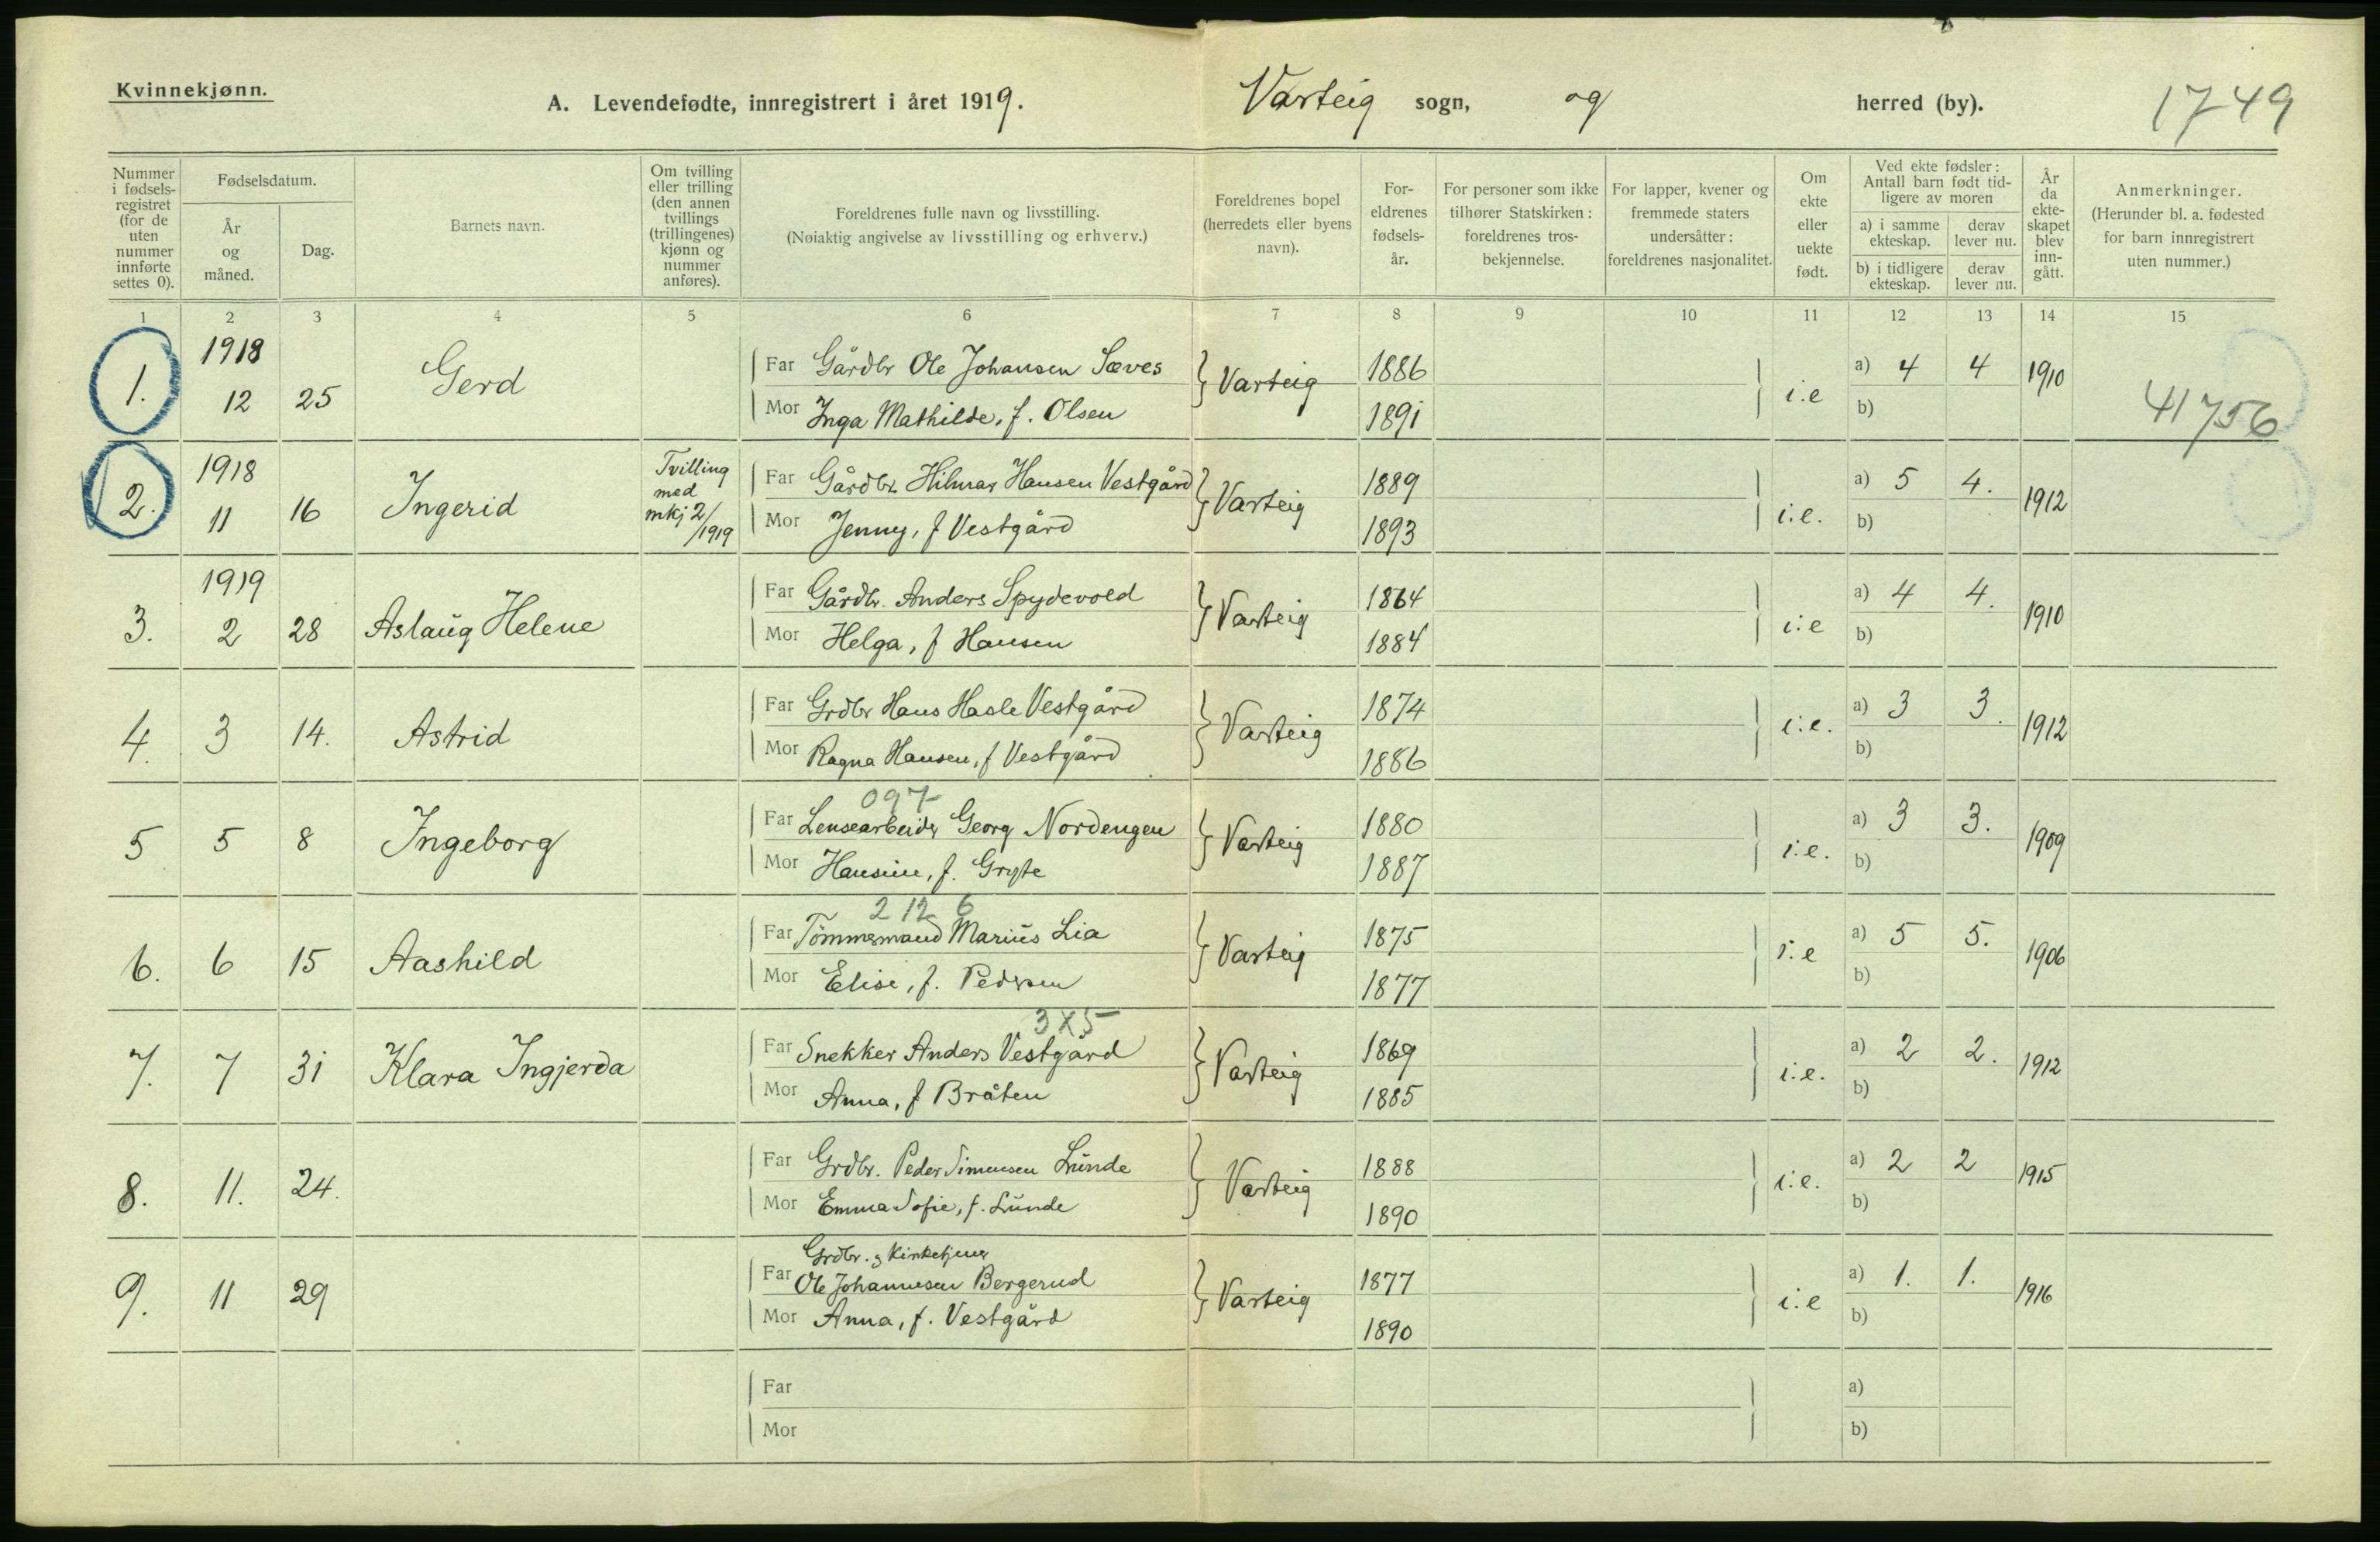 Kvinnekjønn.
A. Levendefødte, innregistrert i året 1919.
Varteig sogn, og herred (by).
1749
Nummer i fødsels-registret (for de uten nummer innførte settes 0).
Fødselsdatum.
År og måned.
Dag.
Barnets navn.
Om tvilling eller trilling (den annen tvillings (trillingenes) kjønn og nummer anføres).
Foreldrenes fulle navn og livsstilling.
(Nøiaktig angivelse av livsstilling og erhverv.)
Foreldrenes bopel (herredets eller byens navn).
For-eldrenes fødsels-år.
For personer som ikke tilhører Statskirken: foreldrenes tros-bekjennelse.
For lapper, kvener og fremmede staters undersåtter: foreldrenes nasjonalitet.
Om ekte eller uekte født.
Ved ekte fødsler: Antall barn født tid-ligere av moren
a) i samme ekteskap.
derav lever nu.
b) i tidligere ekteskap.
derav lever nu.
År da ekte-skapet blev inn-gått.
Anmerkninger.
(Herunder bl. a. fødested for barn innregistrert uten nummer.)
1 2 3 4 5 6 7 8 9 10 11 12 13 14 15
1. 1918 12 25 Gerd
Far Gårdbr Ole Johansen Sæves } Varteig 1886 i.e a) 4 4 1910
Mor Inga Mathilde, f. Olsen 1891 b)
41756
2. 1918 11 16 Ingerid Tvilling med mkj 2/1919
Far Gårdbr Hilmar Hansen Vestgård } Varteig 1889 i.e. a) 5 4. 1912
Mor Jenny, f Vestgård 1893 b)
3. 1919 2 28 Aslaug Helene
Far Gårdbr. Anders Spydevold } Varteig 1864 i.e a) 4 4. 1910
Mor Helga, f Hansen 1884 b)
4. 3 14. Astrid
Far Grdbr Hans Hasle Vestgård } Varteig 1874 i.e. a) 3 3. 1912
Mor Ragna Hansen, f Vestgård 1886 b)
097
5 5 8 Ingeborg
Far Lensearbeider Georg Nordengen } Varteig 1880 i.e. a) 3 3. 1909
Mor Hansine, f. Gryte 1887 b)
2 12 6
6. 6 15 Aashild
Far Tömmermand Marius Lia } Varteig 1875 i.e a) 5 5. 1906
Mor Elise, f. Pedersen 1877 b)
3X5
7. 7 31 Klara Ingjerda
Far Snekker Anders Vestgård } Varteig 1869 i.e. a) 2 2. 1912
Mor Anna, f Bråten 1885 b)
8. 11. 24.
Far Grdbr. Peder Simensen Lunde } Varteig 1888 i.e. a) 2 2 1915
Mor Emma Sofie, f. Lunde 1890 b)
9. 11 29
Grdbr. & Kirketjener
Far Ole Johannesen Bergerud } Varteig 1877 i.e a) 1. 1. 1916
Mor Anna, f. Vestgård 1890 b)
Far a)
Mor b)